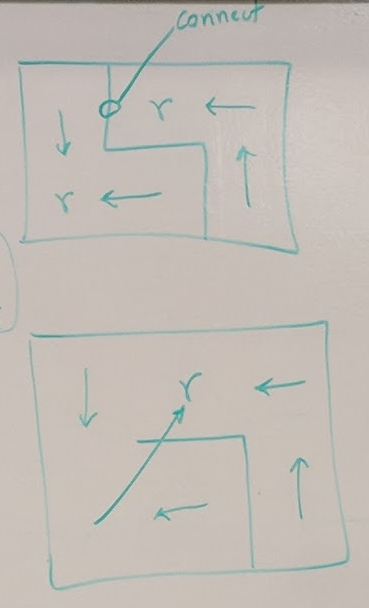 connect
r
r
r